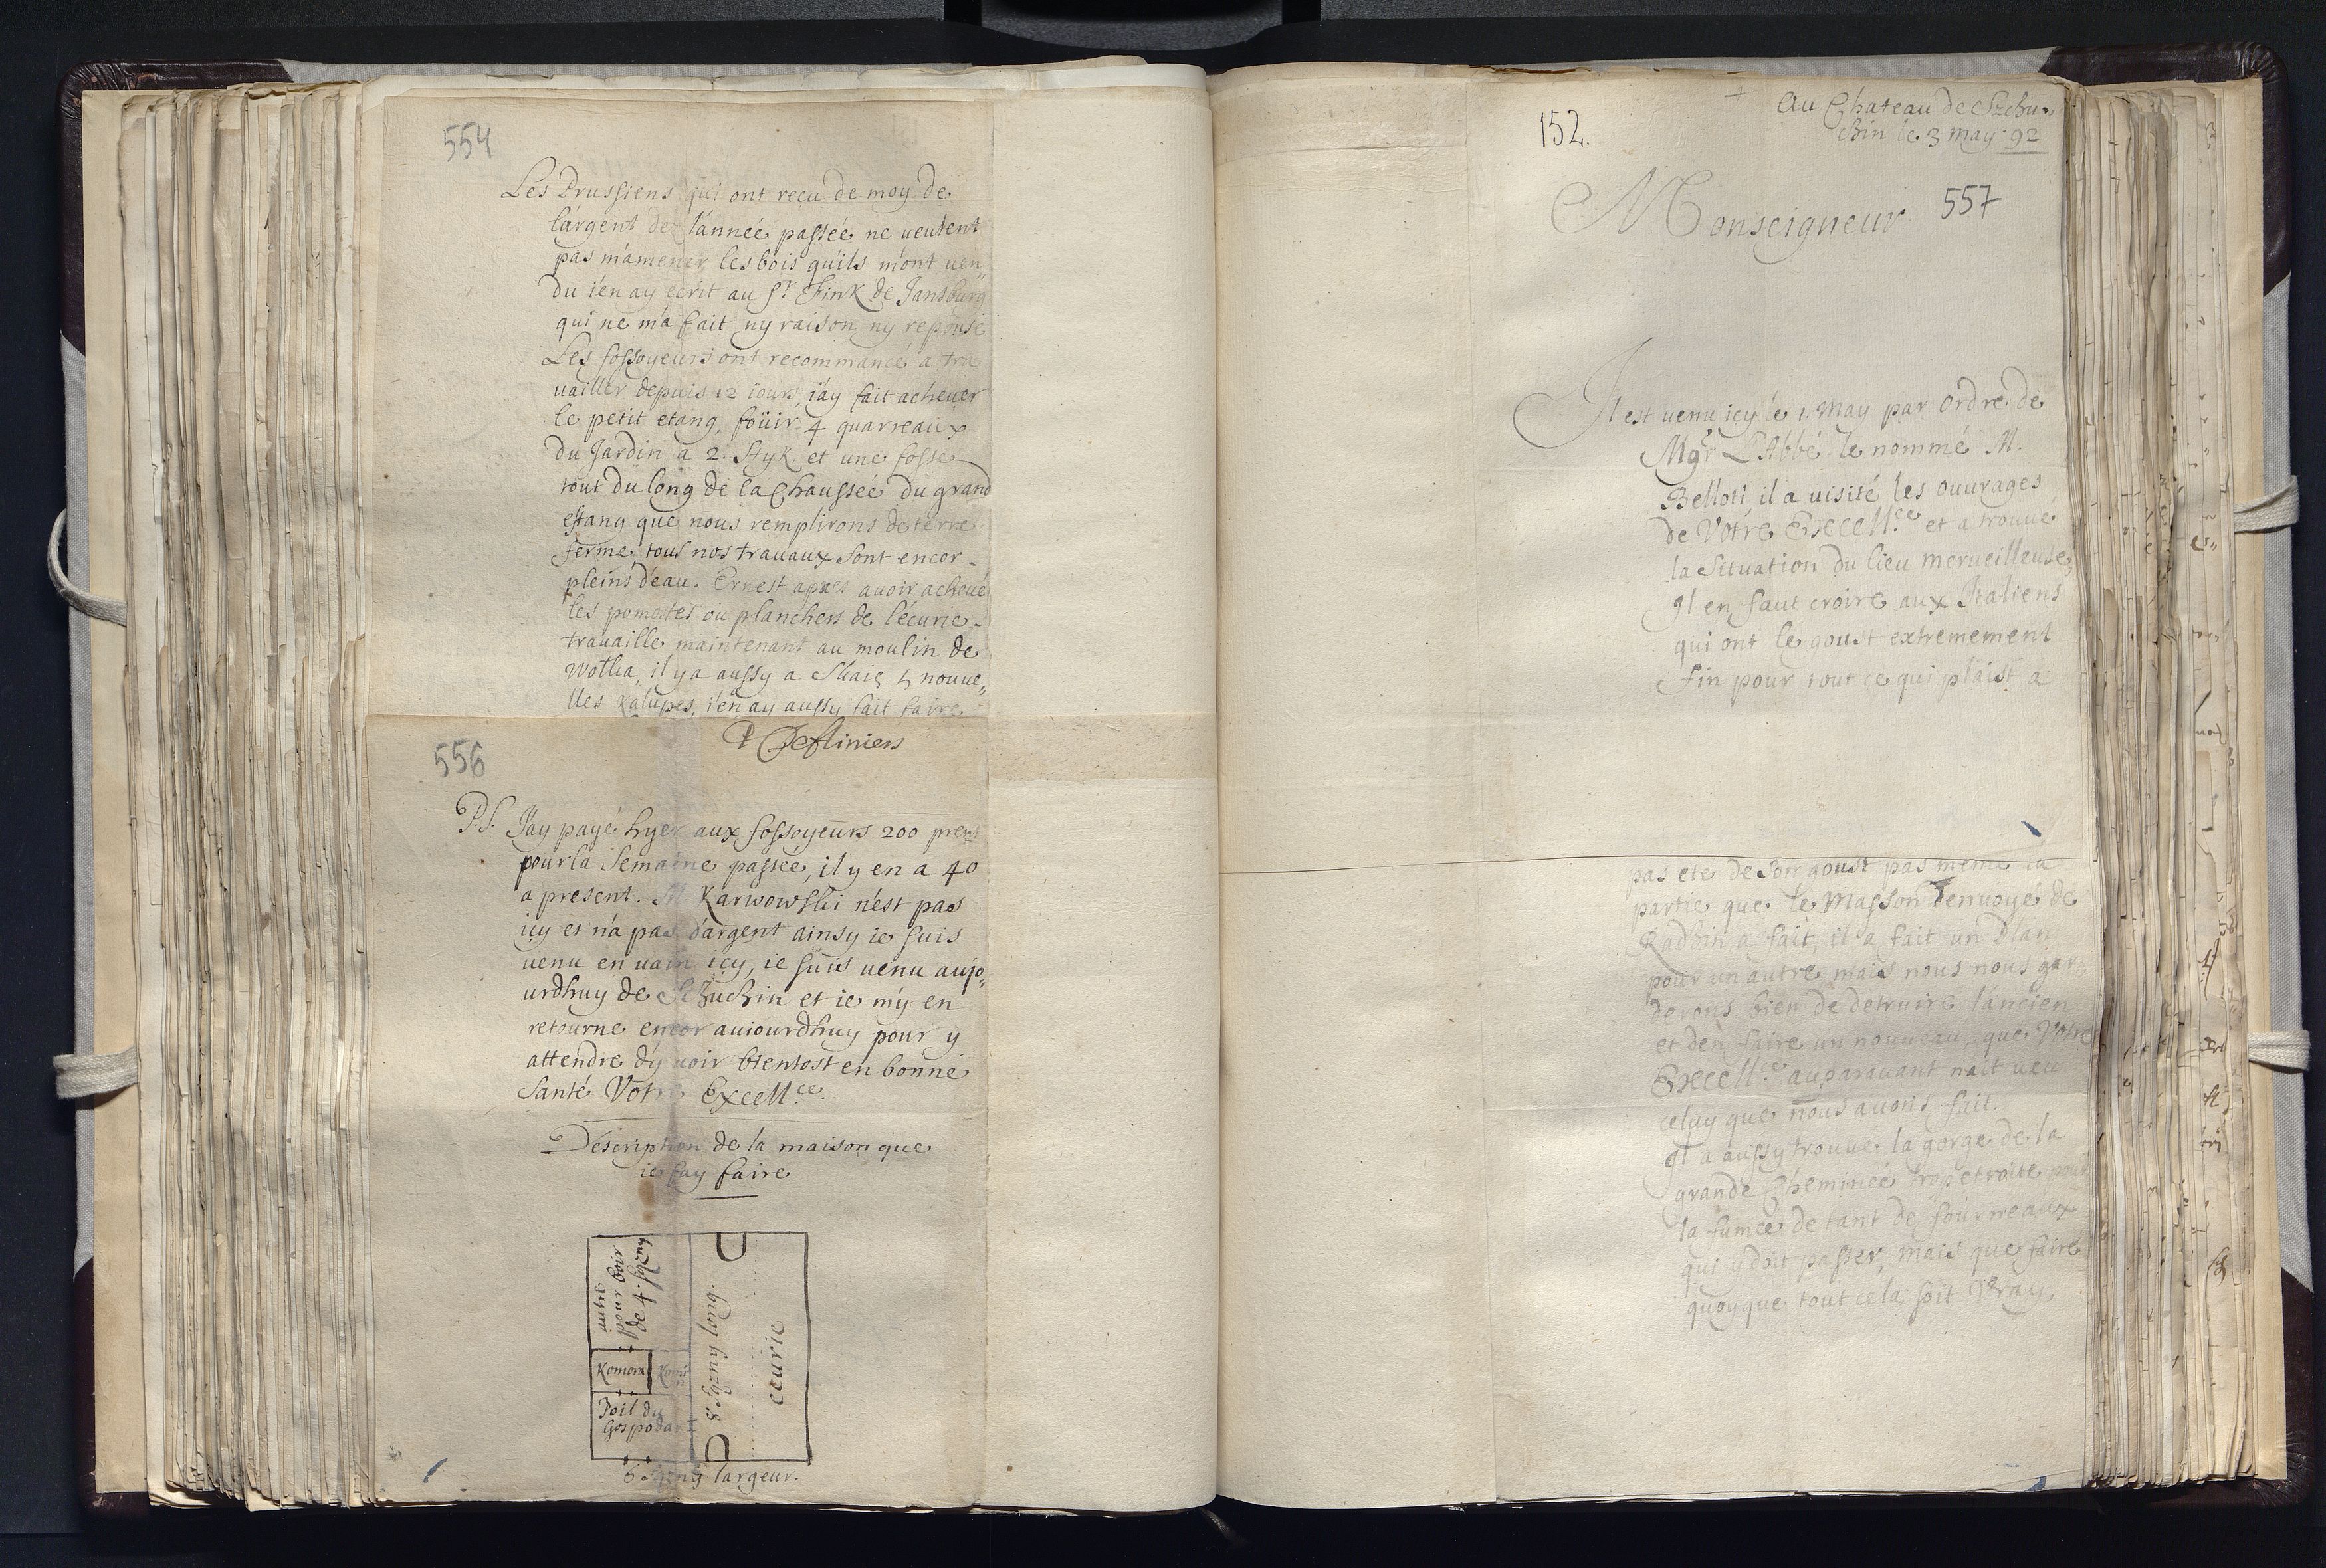 554
Les Prussiens qui ont reçu de moy de
l'argent dez l'année passée ne veulent
pas m'amener les bois qu'ils m'ont ven„
du i'en ay ecrit au Sr. Fink de Jansburg
qui ne m'a fait ny raison ny reponse
Les fossoyeurs ont recommancé a tra
uailler depuis 12 iours, i'ay fait acheuer
le petit etang, foüir 4 quarreaux
du Jardin a 2. Styk. et une fosse
tout du long de la Chaussée du grand
estang que nous remplirons de terre
ferme, tous nos trauaux sont encor
pleins d'eau. Ernest apres auoir acheué
les pomostes ou planchers de l'écurie
trauaille maintenant au moulin de
Wolka, il y a aussy a 4 nouue„
lles Kalupes, i'en ay aussy fait faire
556
P.S. J'ay payé hyer aux fossoyeurs 200
pour la Semaine passée, il y en a 40
a present. M Karwowski n'est pas
icy et n'a pas d'argent ainsy ie suis
uenu en uain icy, ie suis uenu aujo„
urdhuy de Schuchin et ie m'y en
retourne encor auiourdhuy pour y
attendre d'y uoir bientost en bonne
Santé Votre Excell.ce.
Déscription de la maison que
ie fay faire
autre
pour boir
de 4 sązny
Komora
Komin
Poil du
Gospodarz
8 sązny long.
ecurie
6 sązny largeur.
152.
Au Chateau de Szchu„
chin le 3 may 92
Monseigneur
557
Il est uenu icy le 1. may par Ordre de
Mgr L'Abbé le nommé M.
Belloti il a uisité les ouurages
de Votre Excell.ce et a trouué
la Situation du lieu merueilleuse,
Il en faut croire aux Italiens
qui ont le goust extremement
fin pour tout ce qui plaist a
pas eté de son goust pas meme la
partie que le Masson enuoyé de
Radzin a fait, il a fait un Plan
pour un autre mais nous nous gar
derons bien de detruire l'ancien
et d'en faire un nouueau, que Votre
Excell.ce auparauant n'ait ueu
celuy que nous auons fait.
Il a aussy trouué la gorge de la
grande Cheminée trop etroite pour
la fumée de tant de fourneaux
qui y doit passer, mais que faire
quoyque tout cela soit Vray,